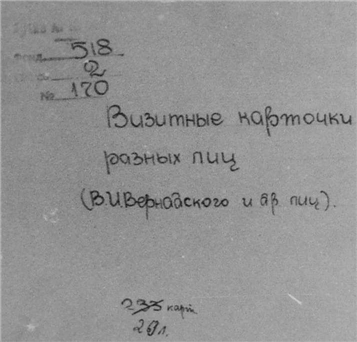 518
2
№ 170
Визитные карточки
разных лиц
(В.И.Вернадского и др лиц).
233 карт
20 л.